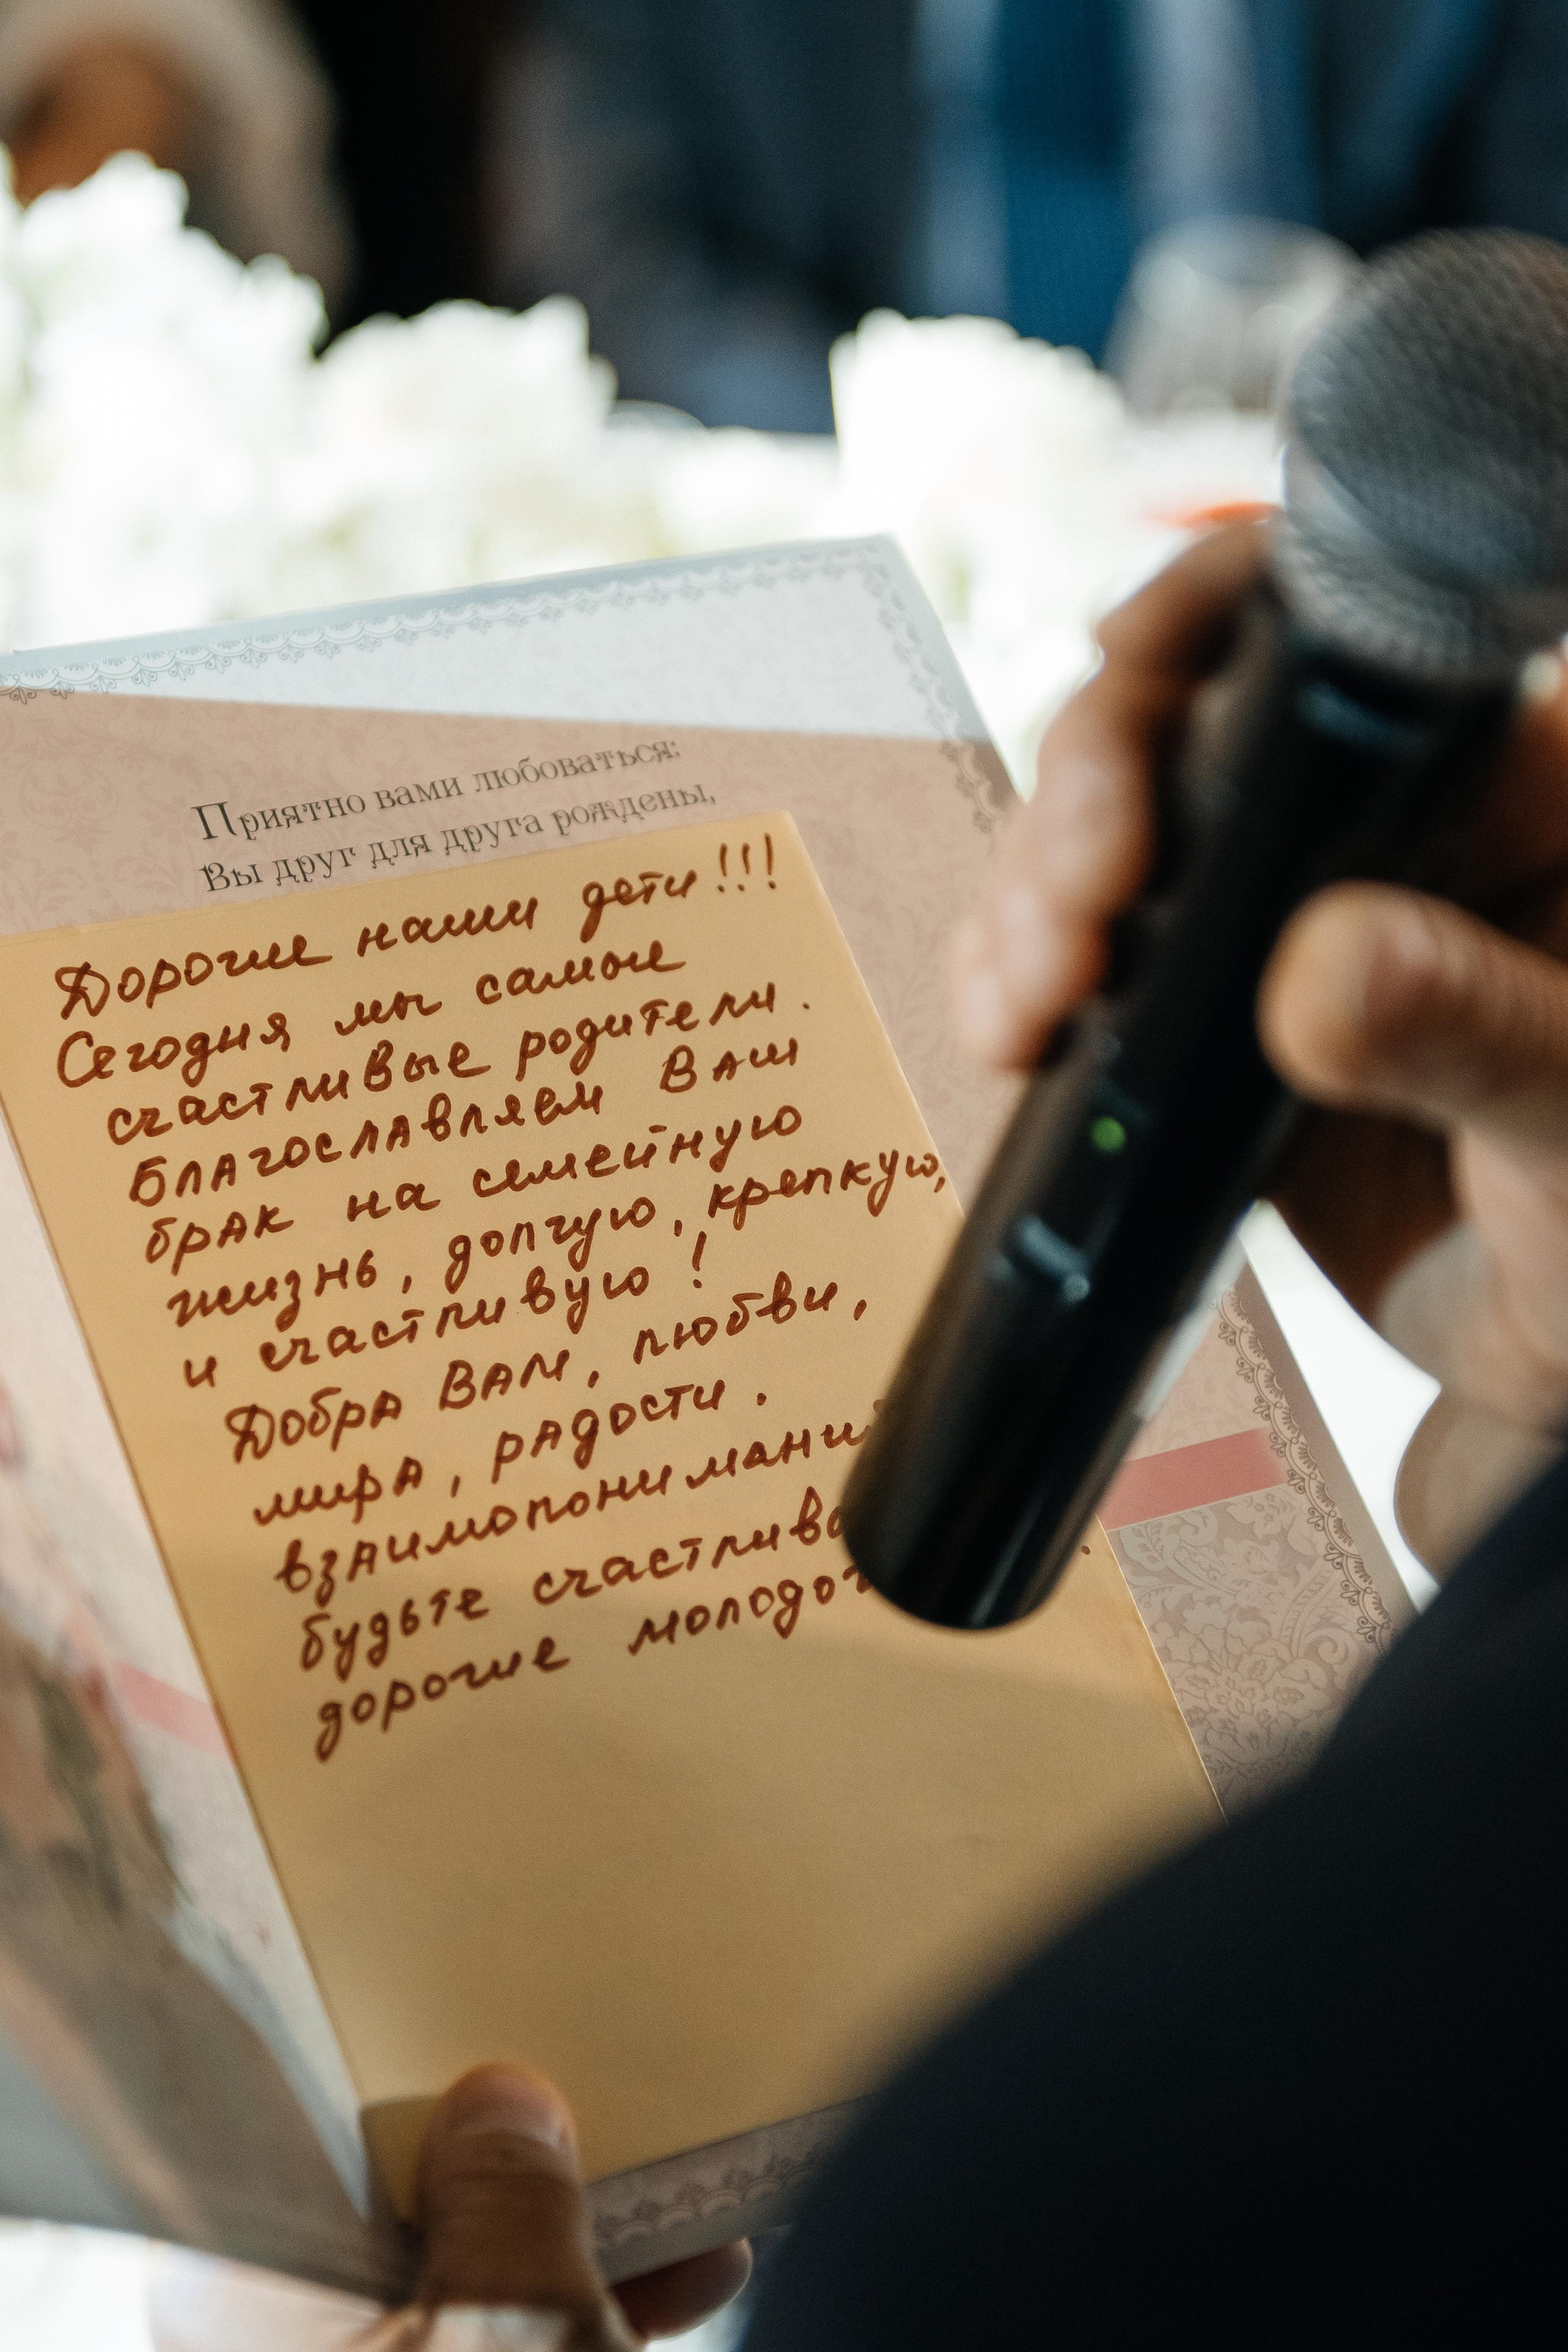 Приятно вами любоваться:
Вы друг для друга рождены,
Дорогие наши дети!!!
Сегодня мы самые
счастливые родители.
Благославляем Ваш
брак на семейную
жизнь, долгую, крепкую,
и счастливую!
Добра Вам, любви,
мира, радости.
взаимопонимани
будьте счастливы
дорогие молодо